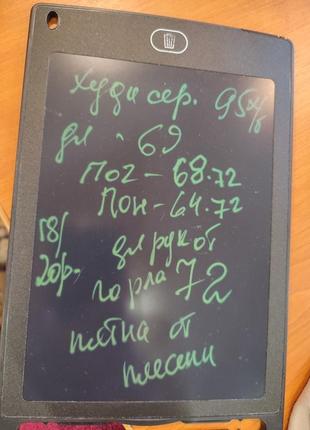 худи сер. 95х/б
дл - 69
Пог - 68-72
Пон - 64-72
18/20р.
дл рук от
горла 72
пятна от
плесени